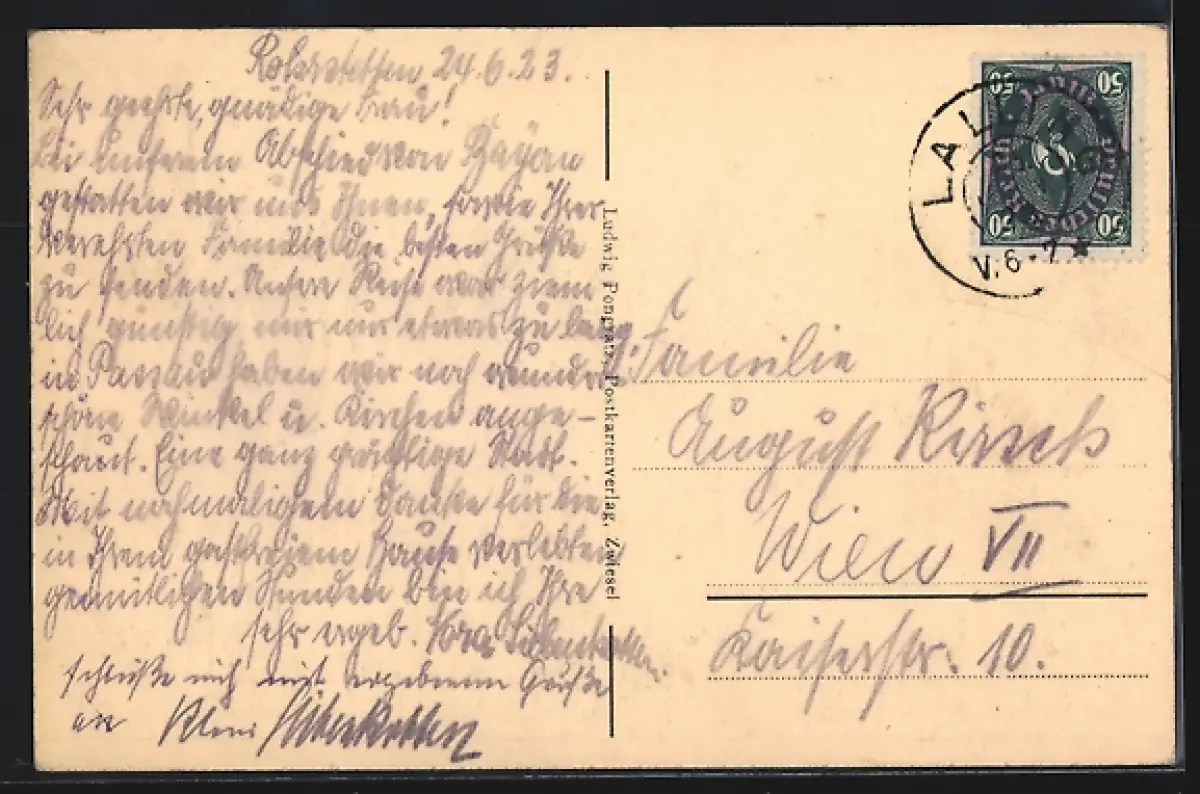 Rohrstetten 24.6.23.
Sehr geehrte, gnädige Frau!
Bei unserem Abschied von Bayern
gestatten wir uns Ihnen, sowie Ihrer
verehrten Familie die besten Grüße
zu senden. Unsere Reise war ziem
lich günstig, nur etwas zu lang.
in Passau haben wir noch wunder
schöne Winkel u. Kirchen ange-
schaut. Eine ganz prächtige Stadt.
Mit nochmaligem Danke für die
in Ihrem gastfreien Hause verlebten
gemütlichen Stunden bin ich Ihre
sehr ergeb.
schließe mich mit ergebenem Grüße
an
Ludwig Pongratz, Postkartenverlag, Zwiesel
50 50
Deutsches Reich
50 50
LALL
V. 6-7 ★
Familie
August Kirsch
Wien VII
Kaiserstr. 10.